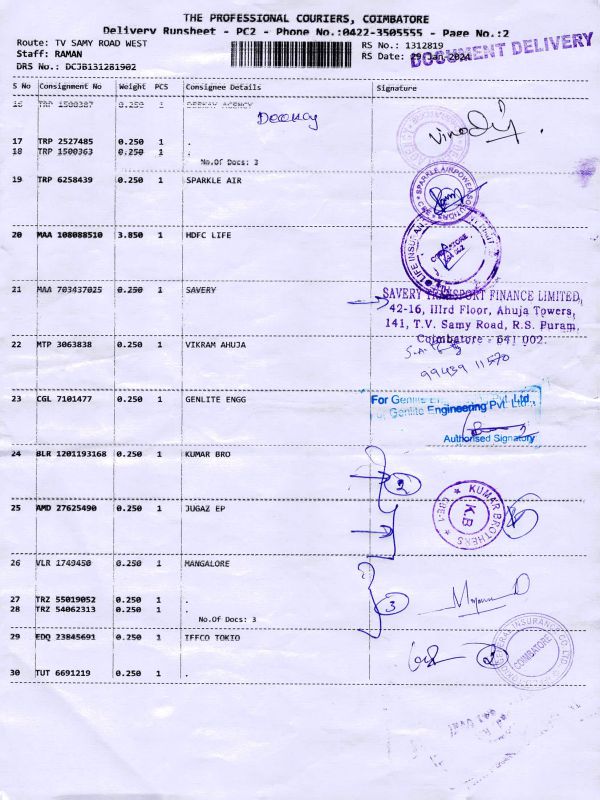 THE PROFESSIONAL COURIERS, COIMBATORE
Delivery Runsheet - PC2 - Phone No.:0422-3505555 - Page No.:2
Route: TV SAMY ROAD WEST
RS No.: 1312819
Staff: RAMAN
RS Date: 29-Jan-2024
DOCUMENT DELIVERY
DRS No.: DCJB131281902
S No Consignment No Weight PCS Consignee Details Signature
16 TRP 1500387 0.250 1 DEEKAY AGENCY
17 TRP 2527485 0.250 1 .
18 TRP 1500363 0.250 1 .
No.Of Docs: 3
19 TRP 6258439 0.250 1 SPARKLE AIR
20 MAA 108088510 3.850 1 HDFC LIFE
21 MAA 703437025 0.250 1 SAVERY
SAVERY TRANSPORT FINANCE LIMITED,
42-16, IIIrd Floor, Ahuja Towers,
141, T.V. Samy Road, R.S. Puram,
Coimbatore - 641 002.
22 MTP 3063838 0.250 1 VIKRAM AHUJA
99439 11570
23 CGL 7101477 0.250 1 GENLITE ENGG
For Genlite Engineering Pvt. Ltd.
Authorised Signatory
24 BLR 1201193168 0.250 1 KUMAR BRO
2
KUMAR BROTHERS
K.B
25 AMD 27625490 0.250 1 JUGAZ EP
26 VLR 1749450 0.250 1 MANGALORE
27 TRZ 55019052 0.250 1 .
28 TRZ 54062313 0.250 1 .
3
No.Of Docs: 3
29 EDQ 23845691 0.250 1 IFFCO TOKIO
COIMBATORE
30 TUT 6691219 0.250 1 .